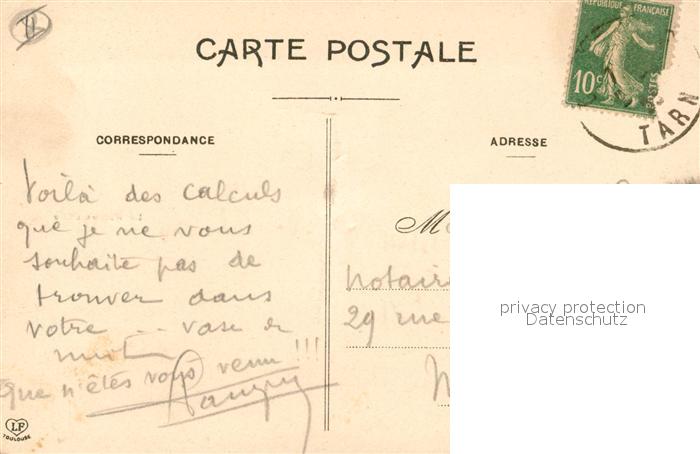 RÉPUBLIQUE FRANÇAISE
10c POSTES
TARN
CARTE POSTALE
CORRESPONDANCE
Voilà des calculs
que je ne vous
souhaite pas de
trouver dans
votre ... vase de
nuit
que n'êtes vous venu !!!
LF
TOULOUSE
ADRESSE
M
Notaire
29 rue
privacy protection
Datenschutz